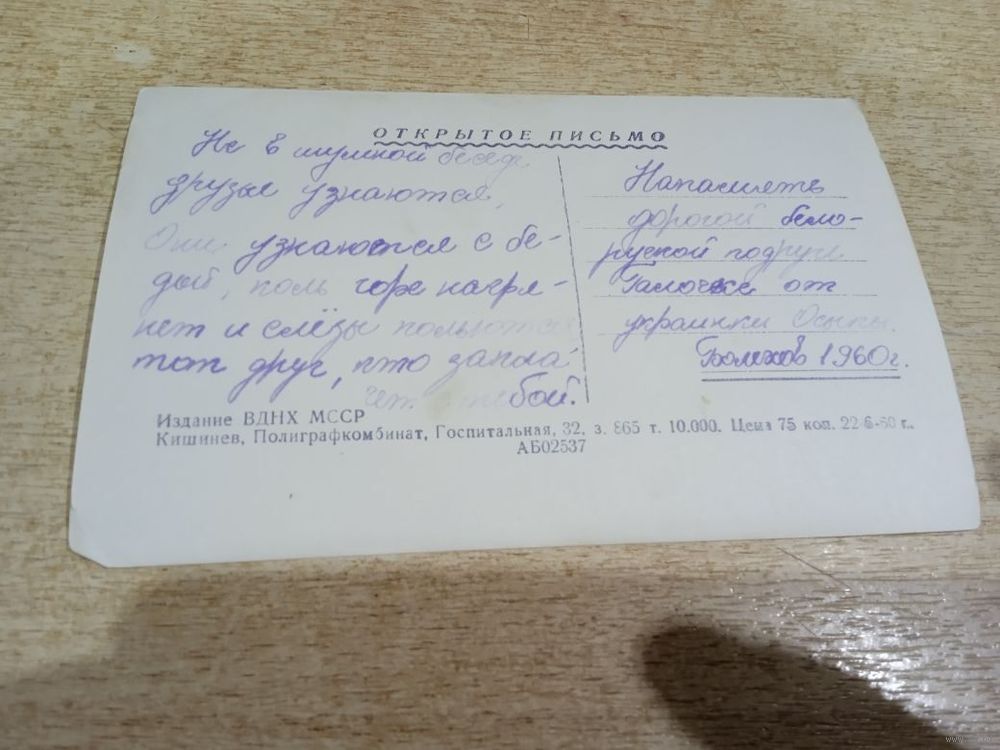 ОТКРЫТОЕ ПИСЬМО
Не в шумной беседе
друзья узнаются,
Они узнаются с бе-
дой, коль горе нагря-
нет и слёзы польются
тот друг, кто запла-
чет тобой.
Напамять
дорогой бело-
руской подруге
Галочке от
украинки
Болехов 1960г.
Издание ВДНХ МССР
Кишинев, Полиграфкомбинат, Госпитальная, 32, з. 865 т. 10.000. Цена 75 коп. 22-6-60 г.
АБ02537